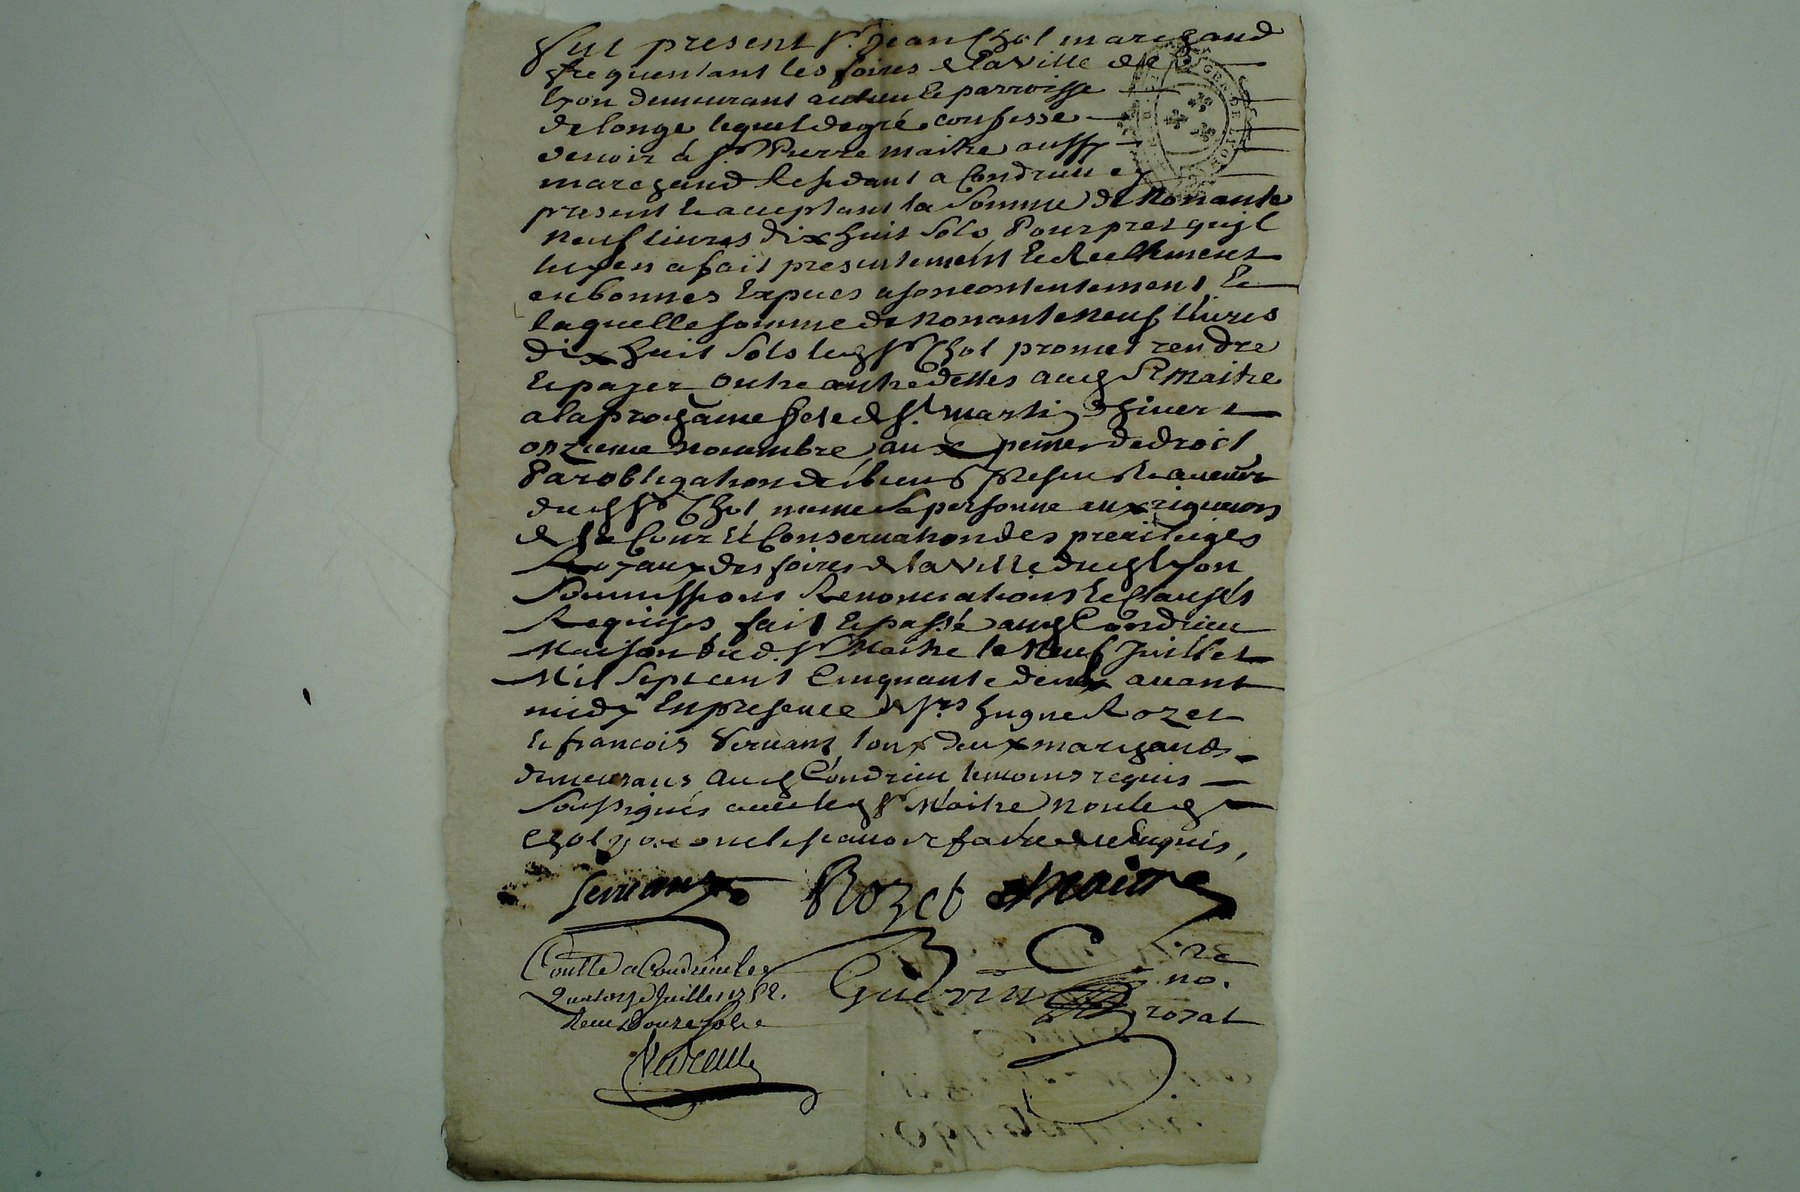 Fut present Sr. Jean Chol marchand
frequentant les foires de la ville de
Lyon demeurant au lieu et parroisse
de longe lequel de gré confesse
devoir a Sr. Pierre Maitre aussy
marchand Residant a Condrieu cy
present et acceptant la Somme de Nonante
neuf livres dix huit Sols Pour pret qu'il
luy en a fait presentement et Reellement
en bonnes Espuces a son contentement Et
laquelle somme de Nonante Neuf Livres
dix huit Sols led Sr Chol promet rendre
et payer Outre autre dettes aud Sr Maitre
a la prochaine fete de St. Martin d'hiver
onzieme Novembre aux peines de droit
Par obligation de biens presens et avenir
dud Sr Chol meme Sa personne aux rigueurs
de la Cour et Conservation des privileiges
Royaux des foires de la Ville dud Lyon
Soumissions Renonciations et Clauses
Requises fait et passé aud Condrieu
Maison dud. Sr Maitre le Neuf Juillet
Mil Sept cent Cinquante deux avant
midy En presence de Srs hugue Rozet
et francois Servant tous deux marchands
demeurans aud Condrieu temoins requis
Soussignés avec led Sr Maitre Non led
Chol pour ne le scavoir faire de ce Enquis,
Servant Rozet Maitre
Guerin
C. re
no.
royal
Contlle a Condrieu le
Quatorze Juillet 1752.
Receu Douze sols